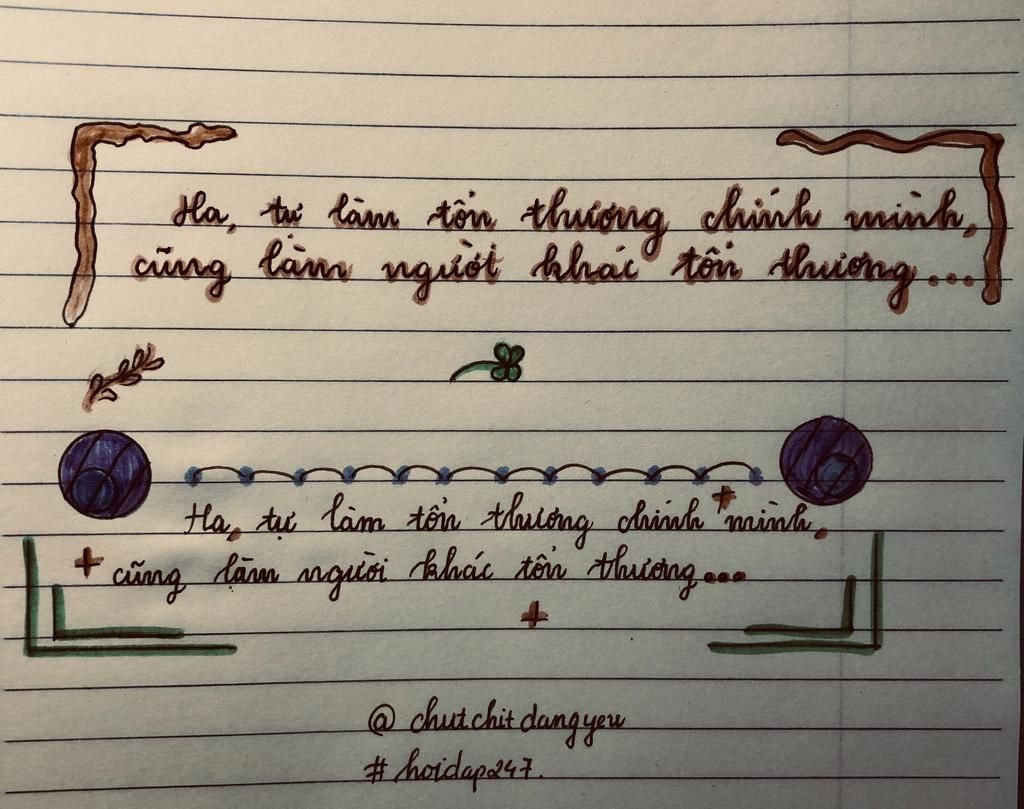 Ha, tự làm tổn thương chính mình,
cũng làm người khác tổn thương...
Ha, tự làm tổn thương chính mình,
cũng làm người khác tổn thương...
@ chutchitdangyeu
# hoidap247.